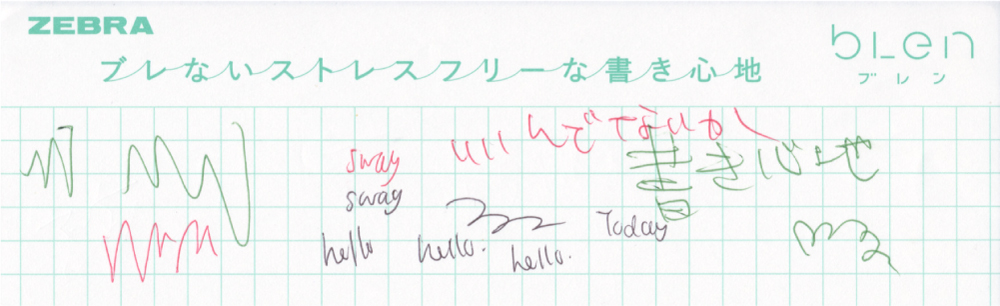 ZEBRA
bLen
ブレン
ブレないストレスフリーな書き心地
いいんでないかい
書き心地
sway
sway
hello
hello.
hello.
Today